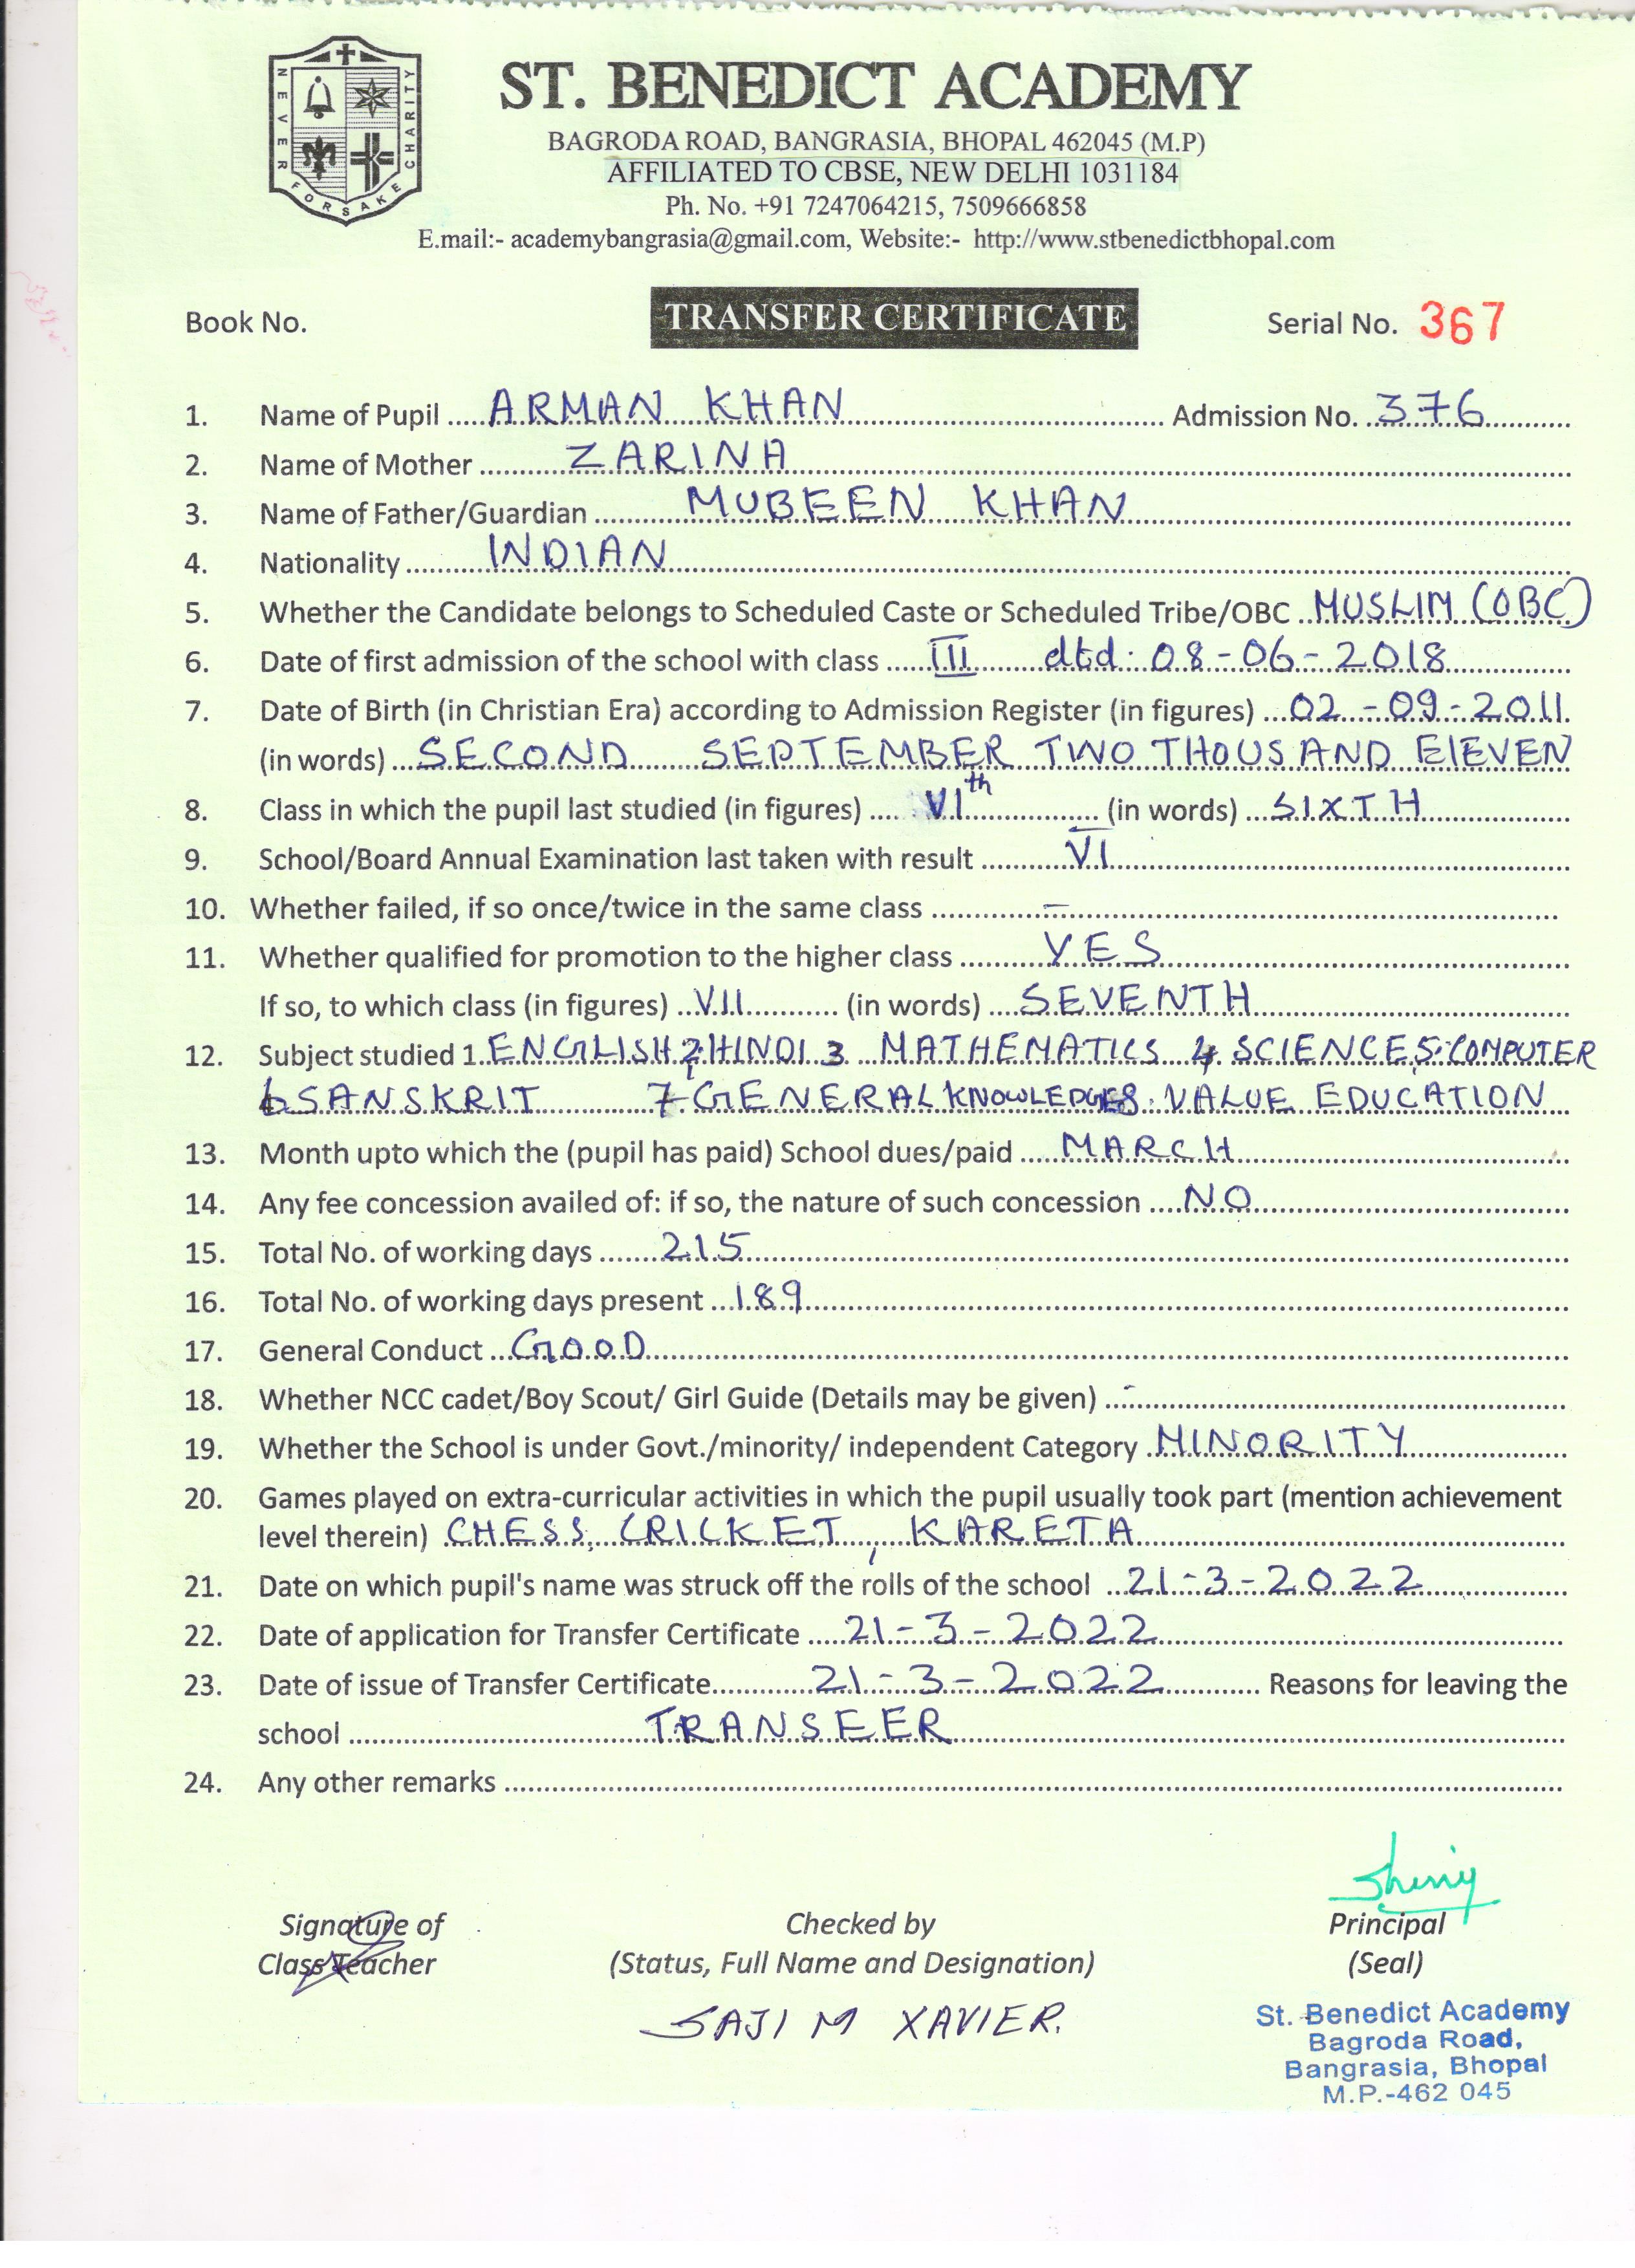 NEVER FORSAKE CHARITY
ST. BENEDICT ACADEMY
BAGRODA ROAD, BANGRASIA, BHOPAL 462045 (M.P)
AFFILIATED TO CBSE, NEW DELHI 1031184
Ph. No. +91 7247064215, 7509666858
E.mail:- academybangrasia@gmail.com, Website:- http://www.stbenedictbhopal.com
Book No. TRANSFER CERTIFICATE Serial No. 367
1. Name of Pupil ARMAN KHAN Admission No. 376
2. Name of Mother ZARINA
3. Name of Father/Guardian MUBEEN KHAN
4. Nationality INDIAN
5. Whether the Candidate belongs to Scheduled Caste or Scheduled Tribe/OBC MUSLIM (OBC)
6. Date of first admission of the school with class III dtd: 08-06-2018
7. Date of Birth (in Christian Era) according to Admission Register (in figures) 02-09-2011.
(in words) SECOND SEPTEMBER TWO THOUSAND ElEVEN
8. Class in which the pupil last studied (in figures) VIth (in words) SIXTH
9. School/Board Annual Examination last taken with result VI
10. Whether failed, if so once/twice in the same class —
11. Whether qualified for promotion to the higher class YES
If so, to which class (in figures) VII (in words) SEVENTH
12. Subject studied 1. ENGLISH 2 HINDI 3 MATHEMATICS 4 SCIENCE 5. COMPUTER
6 SANSKRIT 7 GENERAL KNOWLEDGE 8. VALUE EDUCATION
13. Month upto which the (pupil has paid) School dues/paid MARCH
14. Any fee concession availed of: if so, the nature of such concession NO
15. Total No. of working days 215
16. Total No. of working days present 189
17. General Conduct GOOD
18. Whether NCC cadet/Boy Scout/ Girl Guide (Details may be given) -
19. Whether the School is under Govt./minority/ independent Category MINORITY
20. Games played on extra-curricular activities in which the pupil usually took part (mention achievement
level therein) CHESS, CRICKET, KARETA
21. Date on which pupil's name was struck off the rolls of the school 21-3-2022
22. Date of application for Transfer Certificate 21-3-2022
23. Date of issue of Transfer Certificate 21-3-2022 Reasons for leaving the
school TRANSFER
24. Any other remarks
Sherry
Signature of Checked by Principal
Class Teacher (Status, Full Name and Designation) (Seal)
SAJI M XAVIER.
St. Benedict Academy
Bagroda Road,
Bangrasia, Bhopal
M.P.-462 045